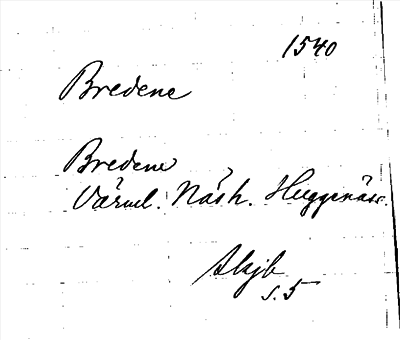 1540
Bredene
Bredene
Värml. Näsh. Huggenäs
s. 5